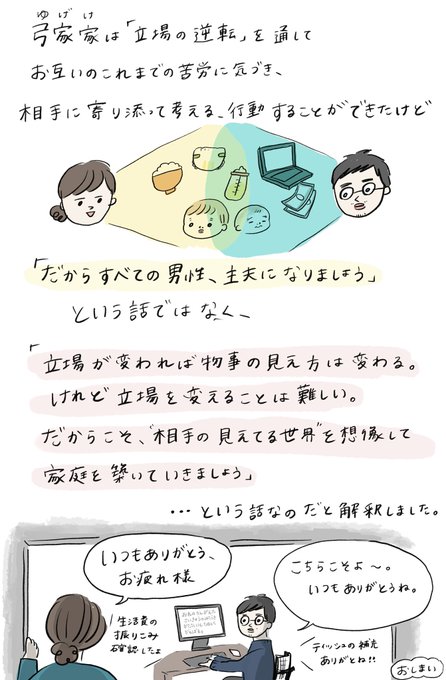 ゆげけ
弓家家は「立場の逆転」を通して
お互いのこれまでの苦労に気づき、
相手に寄り添って考える、行動することができたけど
「だからすべての男性、主夫になりましょう」
という話ではなく、
「
立場が変われば物事の見え方は変わる。
けれど立場を変えることは難しい。
だからこそ、“相手の見えてる世界”を想像して
家庭を築いていきましょう」
…という話なのだと解釈しました。
いつもありがとう、
お疲れ様
生活費の
振りこみ
確認したよ
こちらこそよ〜。
いつもありがとうね。
ティッシュの補充
ありがとね!!
おしまい